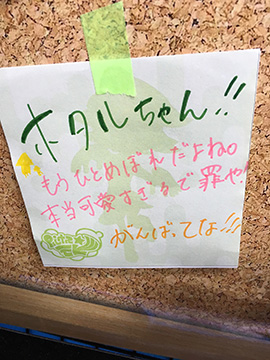 ホタルちゃん!!
もうひとめぼれだよね。
本当可愛すぎるで罪や!
がんばってな!!!